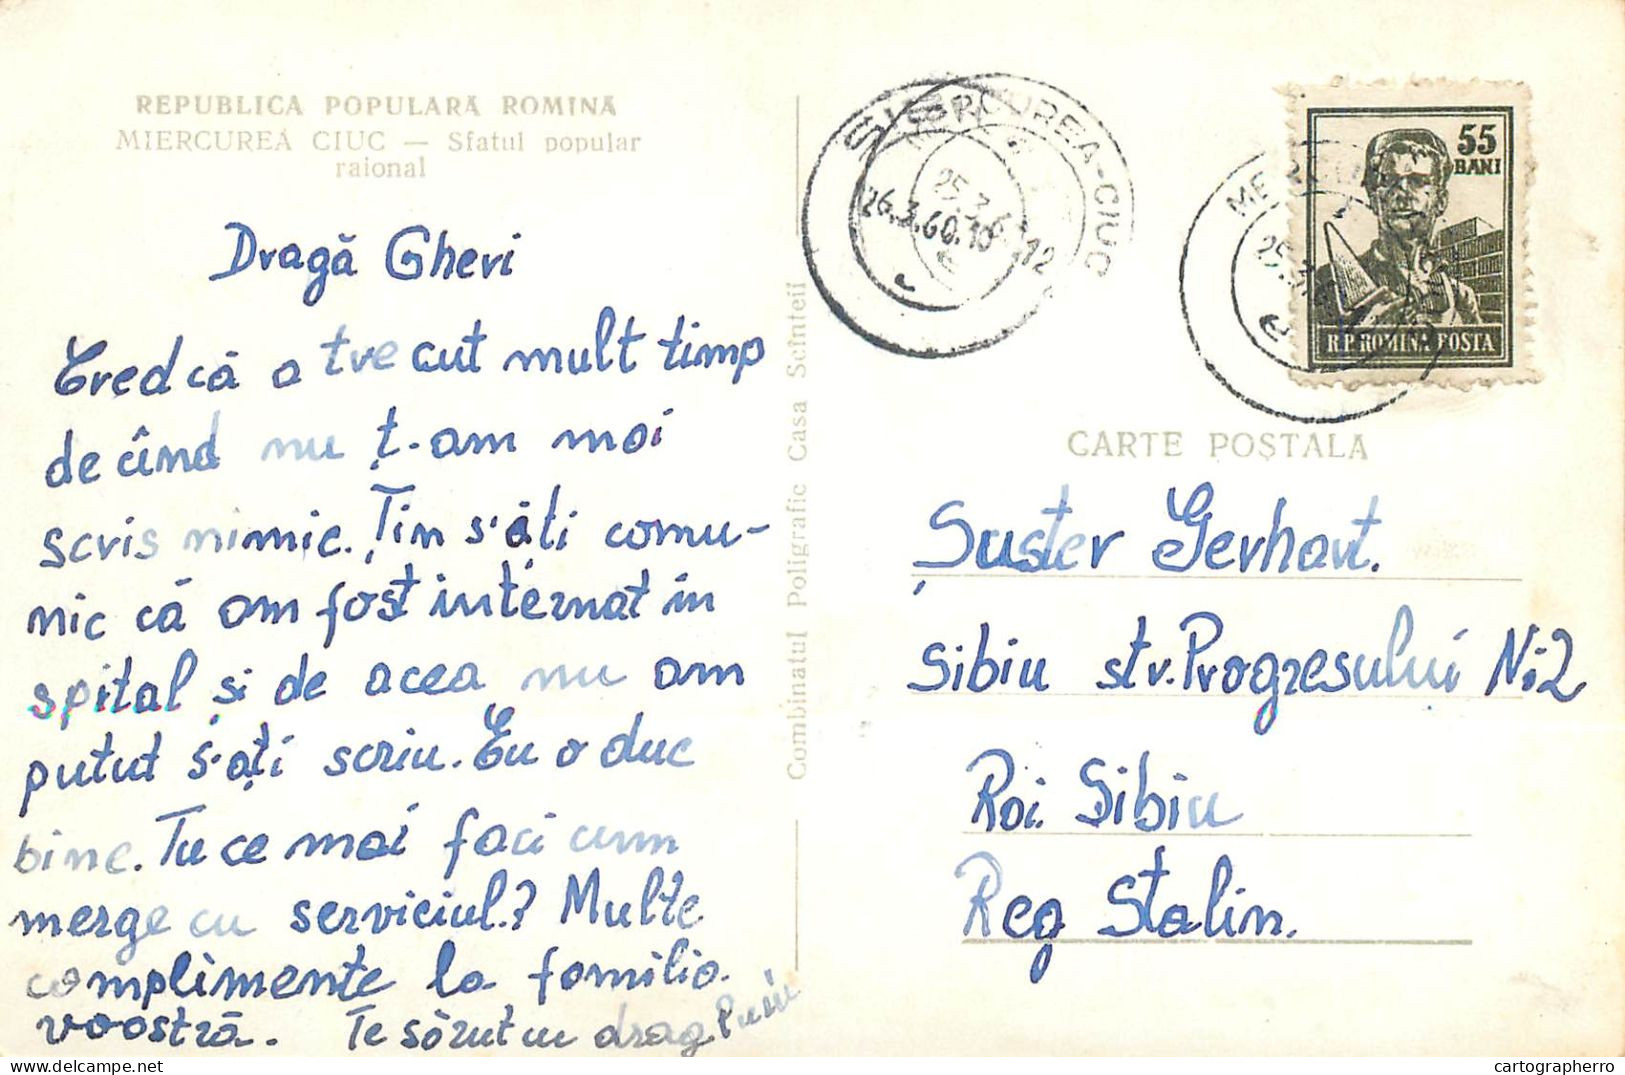 REPUBLICA POPULARĂ ROMINĂ
MIERCUREA CIUC — Sfatul popular
raional
Dragă Gheri
Cred că a trecut mult timp
de cînd nu ț-am mai
scris nimic. Țin s-ăți comu-
nic că am fost internat în
spital și de acea nu am
putut s-ați scriu. Eu o duc
bine. Tu ce mai faci cum
merge cu serviciul.? Multe
complimente la familia
voastră. Te sărut cu drag Puiu
Combinatul Poligrafic Casa Scînteii
SIBIU
26.3.60.10
MIERCUREA-CIUC
25.3.6 12
MIERCUREA
25.3
55
BANI
R.P. ROMINĂ POSTA
CARTE POȘTALĂ
Șuster Gerhart.
Sibiu str. Progresului Nr 2
Rai. Sibiu
Reg Stalin.
cartographerro